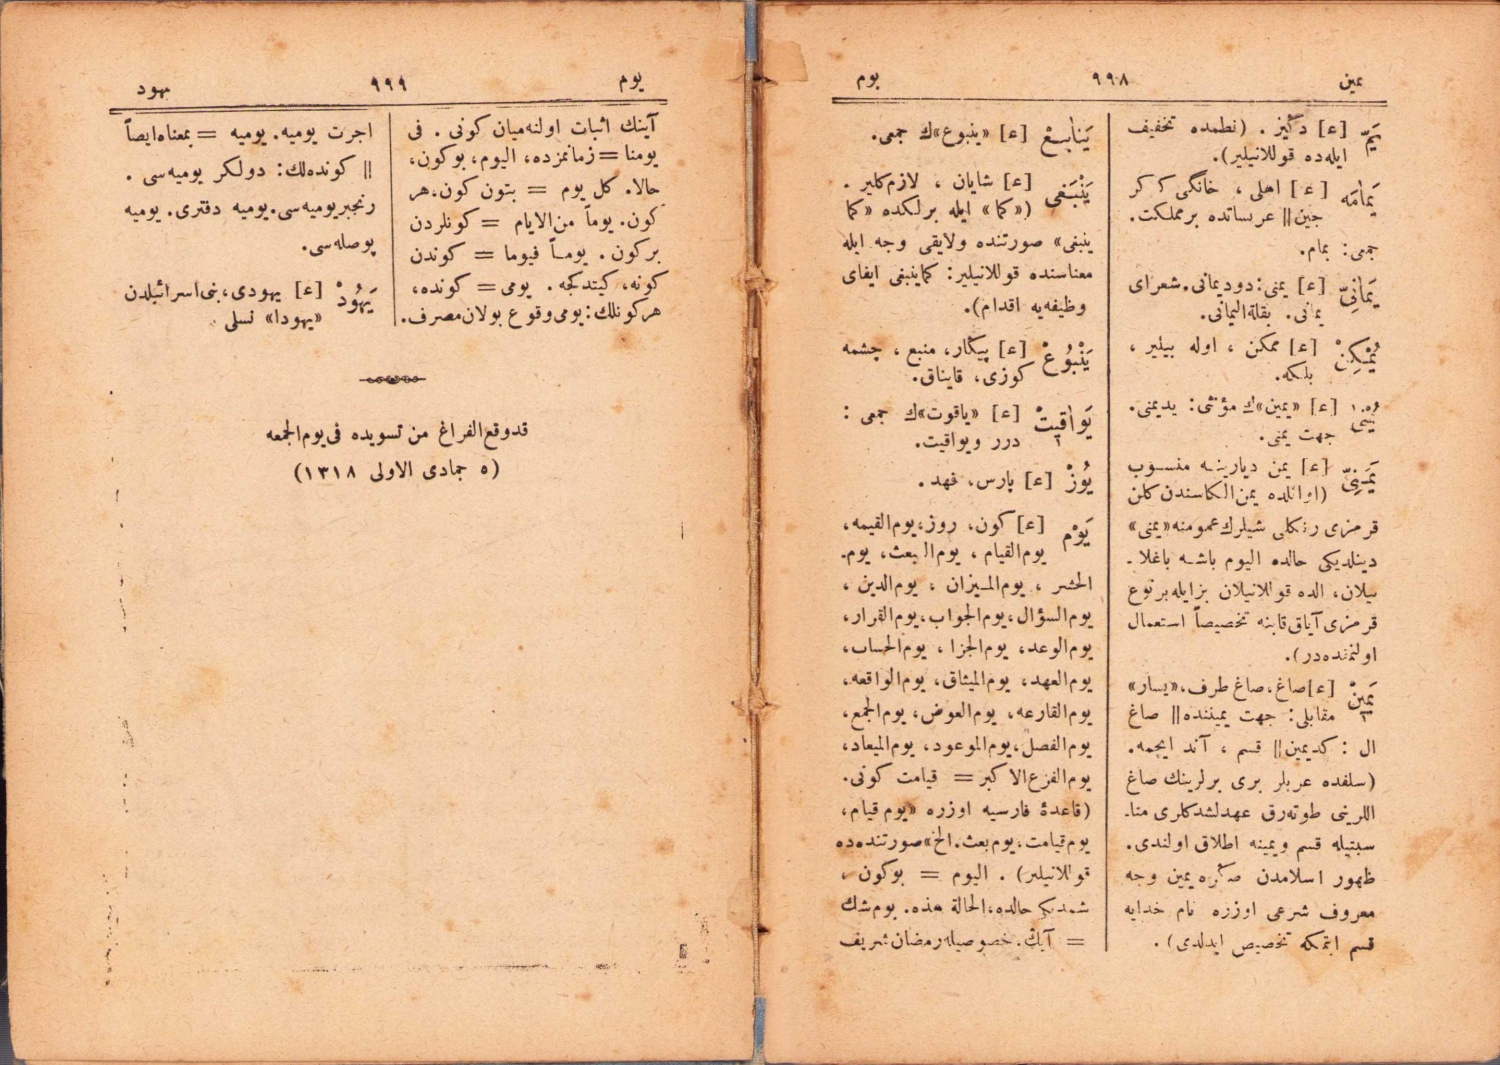 يمين ٩٩٨ يوم
يَمّ [ع] دكيز . (نظمده تخفيف
ايله‌ده قوللانيلير).
يَمامَه [ع] اهلى ، خانگى كوكر
جين || عربستانده برمملكت.
جمى: يمام.
يَمانِىّ [ع] يمنى: دوديمانى. شعراى
يمانى. بقلةاليمانى.
يُمْكِنْ [ع] ممكن ، اوله بيلير ،
بلكه.
يُمْنٰى [ع] «يمين»ك مؤنثى: يديمنى.
جهت يمنى.
يَمَنِىّ [ع] يمن ديارينه منسوب
(اوائلده يمن الكاسندن كلن
قرمزى رنكلى شيلرك عمومنه «يمنى»
دينلديكى حالده اليوم باشه باغلا ـ
نيلان، الده قوللانيلان بزايله برنوع
قرمزى آياق‌قابنه تخصيصاً استعمال
اولنمقده‌در).
يَمِينْ [ع] صاغ، صاغ طرف، «يسار»
مقابلى: جهت يمينده || صاغ
ال : كديمين || قسم ، آند ايچمه.
(سلفده عربلر برى برلرينك صاغ
اللرينى طوته‌رق عهدلشدكلرى منا ـ
سبتيله قسم ويمينه اطلاق اولندى.
ظهور اسلامدن صكره يمين وجه
معروف شرعى اوزره نام خدايه
قسم ايتمكه تخصيص ايدلدى) .
يَنابيعْ [ع] «ينبوع»ك جمى.
يَنْبَغى [ع] شايان ، لازم‌كلير .
(«كما» ايله برلكده «كما
ينبغى» صورتنده ولايقى وجه ايله
معناسنده قوللانيلير: كماينبغى ايفاى
وظيفه‌يه اقدام).
يَنْبُوعْ [ع] پيكار، منبع ، چشمه
كوزى، قايناق.
يَواقِيتْ [ع] «ياقوت»ك جمى :
درر ويواقيت.
يُوزْ [ع] پارس، فهد .
يَوْم [ع] كون، روز، يوم‌القيمه،
يوم‌القيام ، يوم‌البعث، يوم‌ـ
الحشر ، يوم‌الميزان ، يوم‌الدين ،
يوم‌السؤال، يوم‌الجواب، يوم‌القرار،
يوم‌الوعد، يوم‌الجزا ، يوم‌الحساب،
يوم‌العهد، يوم‌الميثاق، يوم‌الواقعه،
يوم‌القارعه، يوم‌العوض، يوم‌الجمع،
يوم‌الفصل، يوم‌الموعود، يوم‌الميعاد،
يوم‌الفزع‌الاكبر = قيامت كونى.
(قاعدۀ فارسيه اوزره «يوم قيام،
يوم‌قيامت، يوم‌بعث. الخ» صورتنده‌ده
قوللانيلير) . اليوم = بوكون ،
شمديكى حالده، الحالة هذه. يوم‌شك
= آيك. خصوصيله رمضان شريف
يوم ٩٩٩ يهود
آينك اثبات اولنه‌ميان كونى . فى
يومنا = زمانمزده، اليوم، بوكون،
حالا. كل يوم = بتون كون، هر
كون. يوماً من‌الايام = كونلردن
بركون . يوماً فيوما = كوندن
كونه، كيتدكجه. يومى = كونده،
هركونلك: يومى وقوع بولان مصرف.
اجرت يوميه. يوميه = بمعناه‌ايضاً
|| كونده‌لك: دولكر يوميه‌سى .
رنجبر يوميه‌سى. يوميه دفترى. يوميه
پوصله‌سى.
يَهُودْ [ع] يهودى، بنى‌اسرائيلدن
«يهودا» نسلى
قدوقع الفراغ من تسويده فى‌يوم‌الجمعه
(٥ جمادى الاولى ١٣١٨)